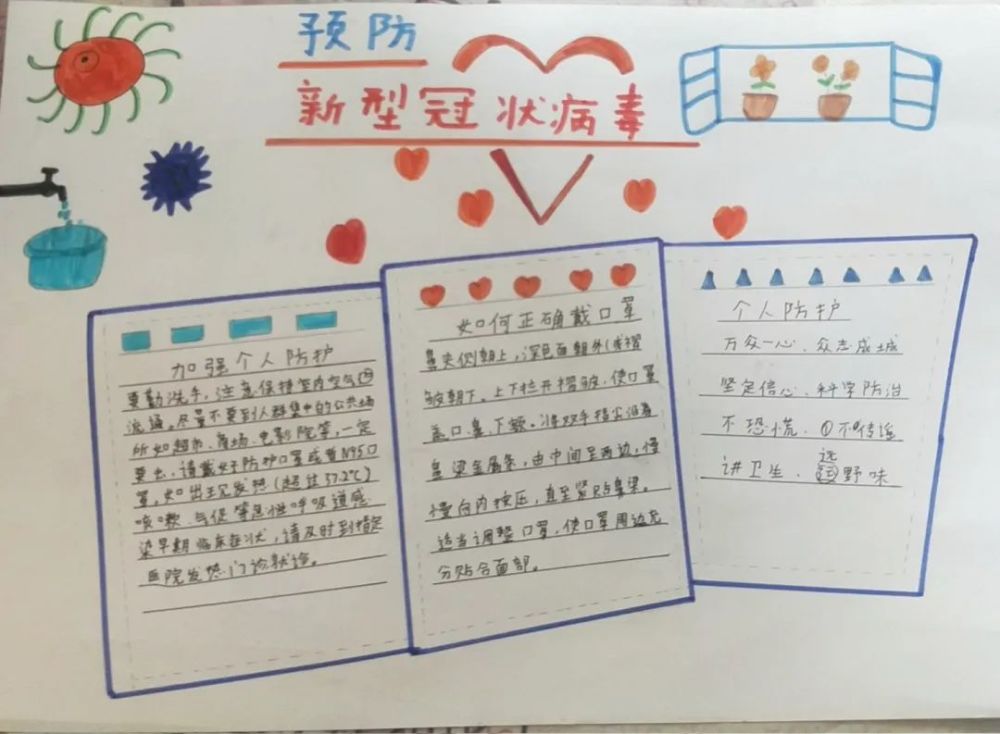 预防
新型冠状病毒
加强个人防护
要勤洗手,注意保持室内空气
流通。尽量不要到人群集中的公共场
所如超市、商场、电影院等,一定
要去,请戴好防护口罩或者N95口
罩,如出现发热(超过37.2℃)
咳嗽、气促等急性呼吸道感
染早期临床症状,请及时到指定
医院发热门诊就诊。
如何正确戴口罩
鼻夹侧朝上,深色面朝外(或褶
皱朝下。上下拉开褶皱,使口罩
盖口、鼻、下颌。将双手指尖沿着
鼻梁金属条,由中间至两边,慢
慢向内按压,直至紧贴鼻梁。
适当调整口罩,使口罩周边充
分贴合面部。
个人防护
万众一心、众志成城
坚定信心、科学防治
不恐慌、不传谣
讲卫生、远野味